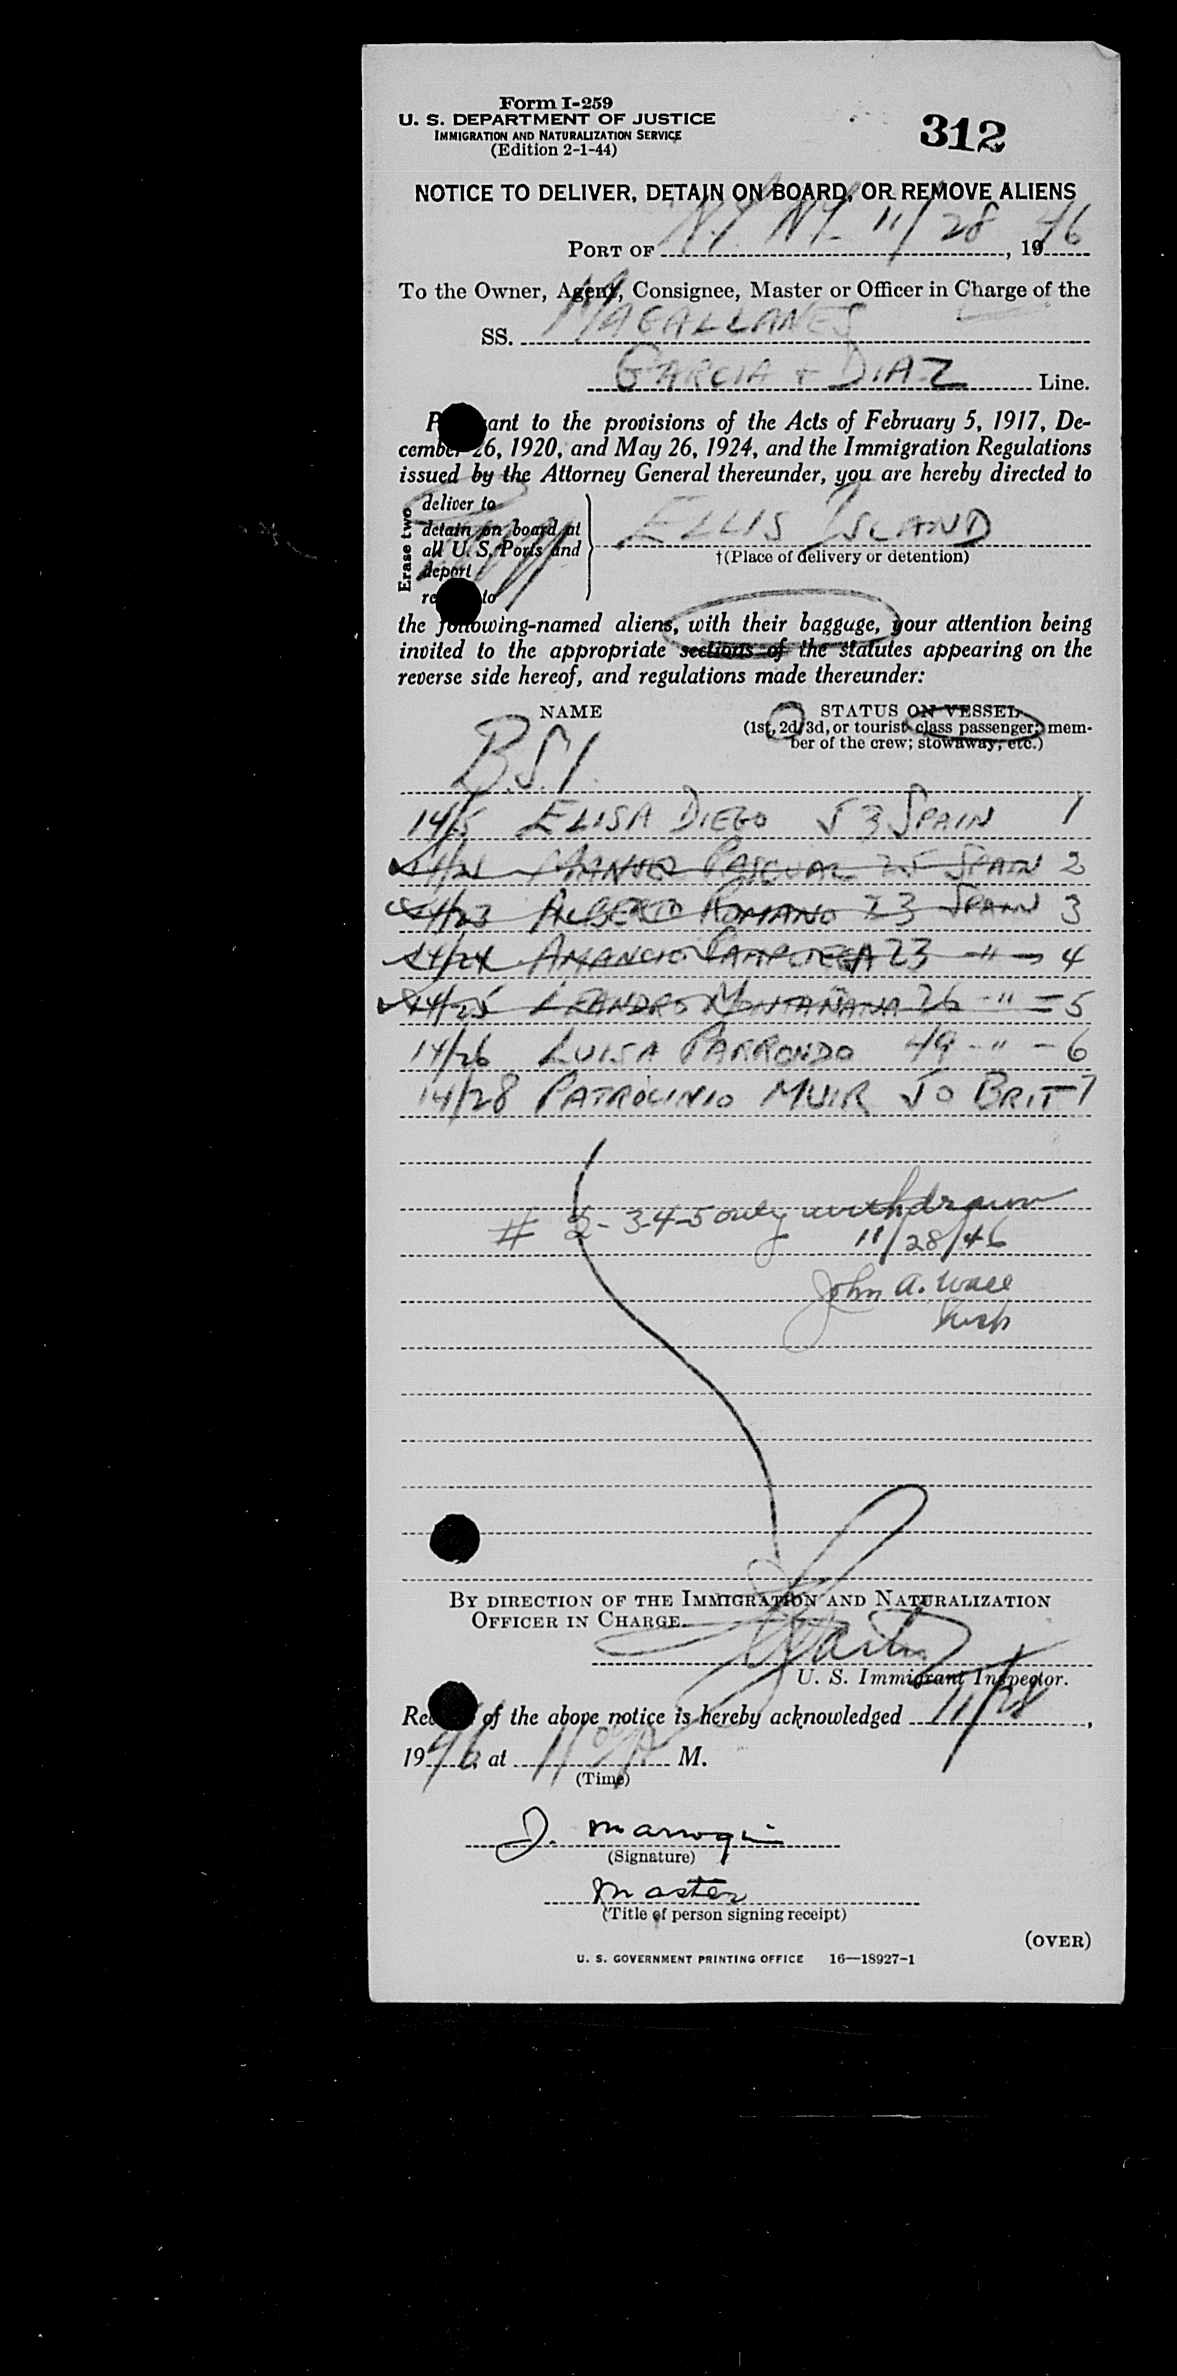 Form I-259
U. S. DEPARTMENT OF JUSTICE
IMMIGRATION AND NATURALIZATION SERVICE
(Edition 2-1-44)
312
NOTICE TO DELIVER, DETAIN ON BOARD, OR REMOVE ALIENS
PORT OF N.Y. N.Y. 11/28, 1946
To the Owner, Agent, Consignee, Master or Officer in Charge of the
SS. MAGALLANES
GARCIA + DIAZ Line.
ant to the provisions of the Acts of February 5, 1917, De-
cember 26, 1920, and May 26, 1924, and the Immigration Regulations
issued by the Attorney General thereunder, you are hereby directed to
Erase two
deliver to
detain on board at
all U. S. Ports and
deport
to
ELLIS ISLAND
†(Place of delivery or detention)
the following-named aliens, with their baggage, your attention being
invited to the appropriate sections of the statutes appearing on the
reverse side hereof, and regulations made thereunder:
NAME
STATUS ON VESSEL
(1st, 2d, 3d, or tourist class passenger; mem-
ber of the crew; stowaway; etc.)
B.S.I.
14/5 ELISA DIEGO 53 SPAIN 1
14/21 MANUEL PASCUAL 25 SPAIN 2
14/23 ALBERTO ROMANO 23 SPAIN 3
14/24 AMANCIO PAMPLIEGA 23 " - 4
14/25 LEANDRO MONTAÑANA 26 - " - 5
14/26 LUISA PARRONDO 49 - " - 6
14/28 PATROCINIO MUIR 50 BRIT - 7
# 2-3-4-5 only withdrawn
11/28/46
John A. Wall
Insp
BY DIRECTION OF THE IMMIGRATION AND NATURALIZATION
OFFICER IN CHARGE.
U. S. Immigrant Inspector.
of the above notice is hereby acknowledged 11/28,
1946, at 11 M.
(Time)
J.
(Signature)
Master
(Title of person signing receipt)
(OVER)
U. S. GOVERNMENT PRINTING OFFICE 16—18927-1